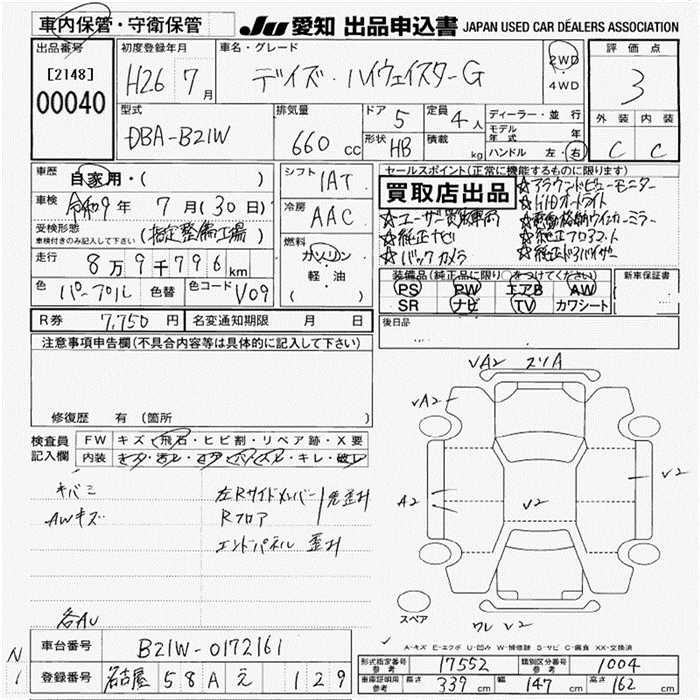 車内保管・守衛保管
JU 愛知 出品申込書 JAPAN USED CAR DEALERS ASSOCIATION
出品番号
[2148]
00040
初度登録年月
H26 7月
車名・グレード
デイズ・ハイウェイスターG
2WD
・
4WD
評価点
3
外装 内装
C C
型式
DBA-B21W
排気量
660 cc
ドア 5
定員 4人
形状 HB
積載 kg
ディーラー・並行
モデル年式 年
ハンドル 左・右
車歴
自家用・( )
車検 令和9年 7月(30日)
受検形態
車検付きのみ記入して下さい
(指定整備工場)
走行 8万9千796km
色 パープル 色替 色コード V09
シフト
1AT
冷房
AAC
燃料
ガソリン
・
軽・油
( )
セールスポイント(正常に機能するものに限ります)
買取店出品
☆アラウンドビューモニター
☆HIDオートライト
☆ユーザー買取車両
☆電動格納ウインカーミラー
☆純正ナビ
☆純正フロアマット
☆バックカメラ
☆純正ドアバイザー
装備品(純正品に限り○をつけてください)
PS PW エアB AW
SR ナビ TV カワシート
新車保証書
R券 7,750円 名変通知期限 月 日
後日品
注意事項申告欄(不具合内容等は具体的に記入して下さい)
修復歴 有(箇所
検査員
記入欄
FW キズ・飛石・ヒビ割・リペア跡・X要
内装 キズ・汚レ・コゲ・穴・キレ・破レ
キバミ
AWキズ
左Rサイドメンバー
Rフロア
エンドパネル 歪み
各AU
VA2 スリA
VA2
A2
V2
V2
ワレ V2
スペア
A-キズ E-エクボ U-凹み W-補修跡 S-サビ C-腐食 XX-交換済
車台番号 B21W-0172161
N
1
登録番号 名古屋 58A え 129
形式指定番号
参考
17552
類別区分番号
参考
1004
車庫証明用
参考
長さ 339 cm 幅 147 cm 高さ 162 cm